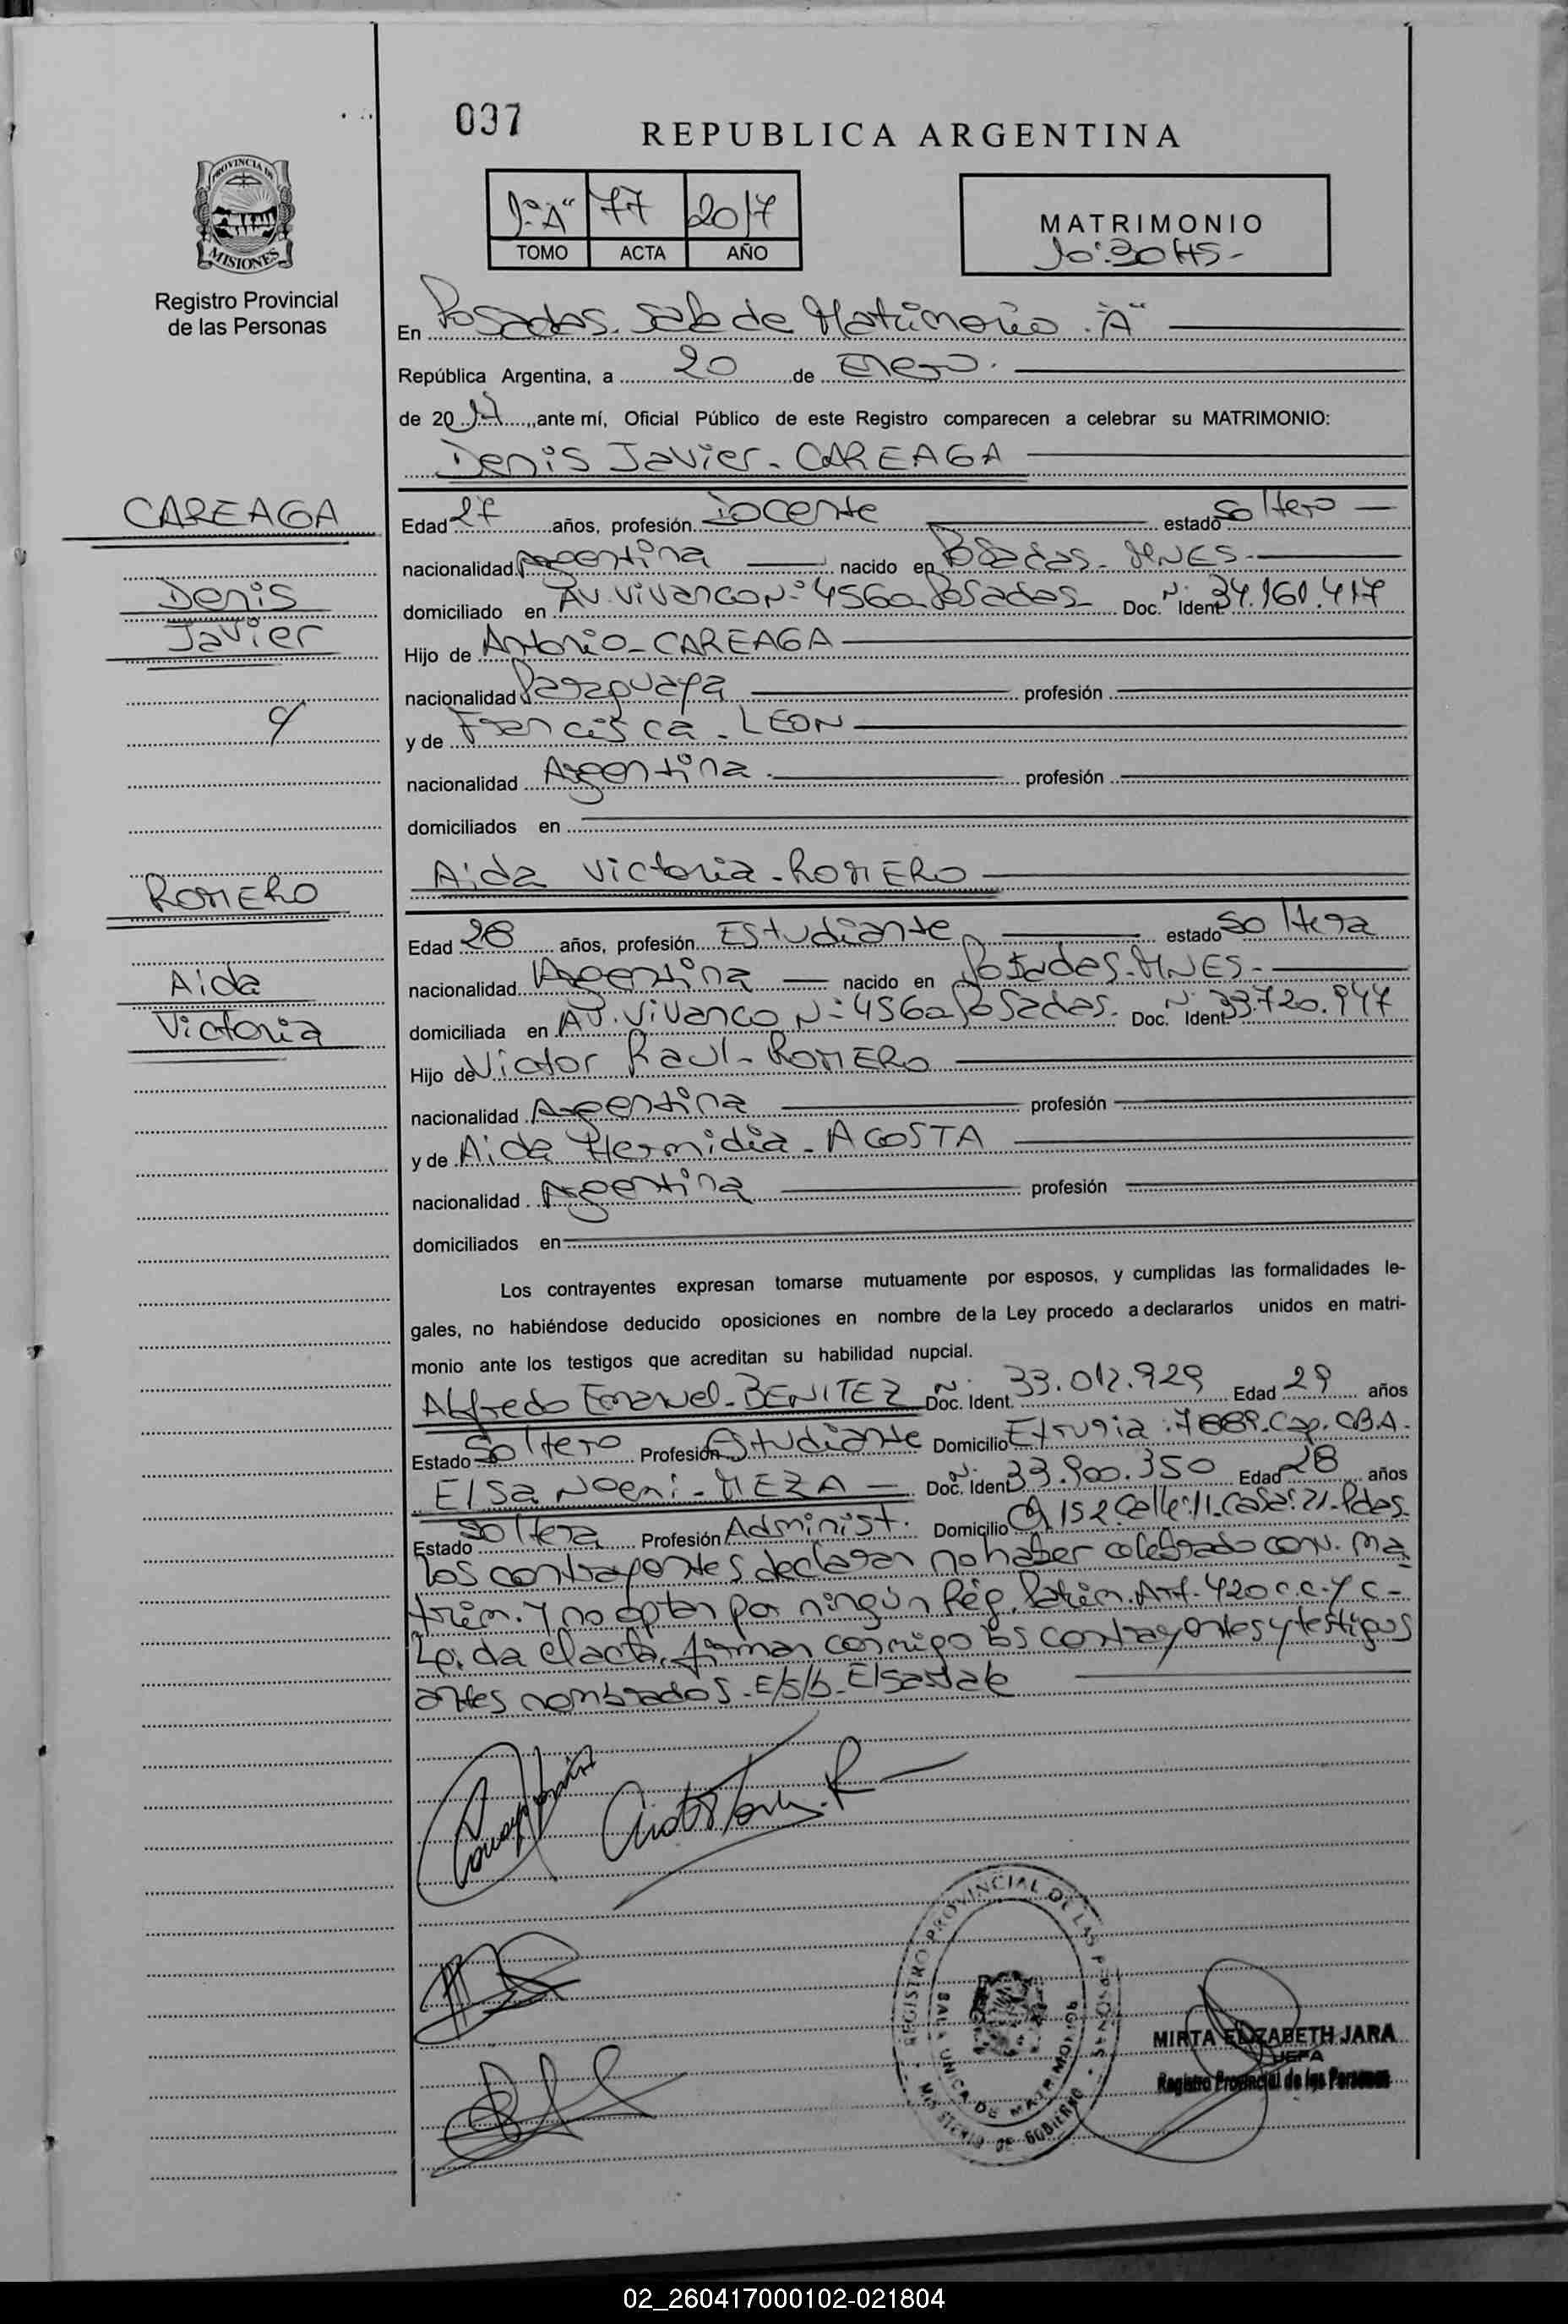 037
REPUBLICA ARGENTINA
PROVINCIA DE
MISIONES
Registro Provincial
de las Personas
1º "A" 77 2017
TOMO ACTA AÑO
MATRIMONIO
10:30 HS-
En Posadas. Sala de Matrimonio. "A"
República Argentina, a 20 de Enero.
de 2017, ante mí, Oficial Público de este Registro comparecen a celebrar su MATRIMONIO:
Denis Javier. CAREAGA
CAREAGA
Denis
Javier
Edad 27 años, profesión Docente estado Soltero
nacionalidad Argentina nacido en Posadas. MNES.
domiciliado en Av. Vivanco Nº 4560 Posadas Doc. Nº Ident 34.161.417
Hijo de Antonio - CAREAGA
nacionalidad Paraguaya profesión
y de Francisca - LEON
nacionalidad Argentina. profesión
domiciliados en
y
ROMERO
Aida
Victoria
Aida Victoria - ROMERO
Edad 28 años, profesión Estudiante estado Soltera
nacionalidad Argentina nacido en Posadas. MNES.
domiciliada en Av. Vivanco Nº 4560 Posadas. Doc. Nº Ident 33.720.947
Hijo de Victor Raul - ROMERO
nacionalidad Argentina profesión
y de Aida Hermidia - ACOSTA
nacionalidad Argentina profesión
domiciliados en
Los contrayentes expresan tomarse mutuamente por esposos, y cumplidas las formalidades le-
gales, no habiéndose deducido oposiciones en nombre de la Ley procedo a declararlos unidos en matri-
monio ante los testigos que acreditan su habilidad nupcial.
Alfredo Emanuel - BENITEZ Doc. Nº Ident. 33.012.929 Edad 29 años
Estado Soltero Profesión Estudiante Domicilio Etruria. 7889. Cap. CBA.
Elsa Noemi - MEZA Doc. Nº Ident 33.900.350 Edad 28 años
Estado Soltera Profesión Administ. Domicilio Ch 152 Calle: 11. Casa: 21. Pdas.
Los contrayentes declaran no haber celebrado conv. ma
trim. y no optan por ningún Rég. Patrim. Art. 420 C.C. y C-
Leida el acta, firman conmigo los contrayentes y testigos
antes nombrados. E/s/b - Elsa vale
REGISTRO PROVINCIAL DE LAS PERSONAS
SALA UNICA DE MATRIMONIOS
MINISTERIO DE GOBIERNO
MIRTA ELIZABETH JARA
JEFA
Registro Provincial de las Personas
02_260417000102-021804